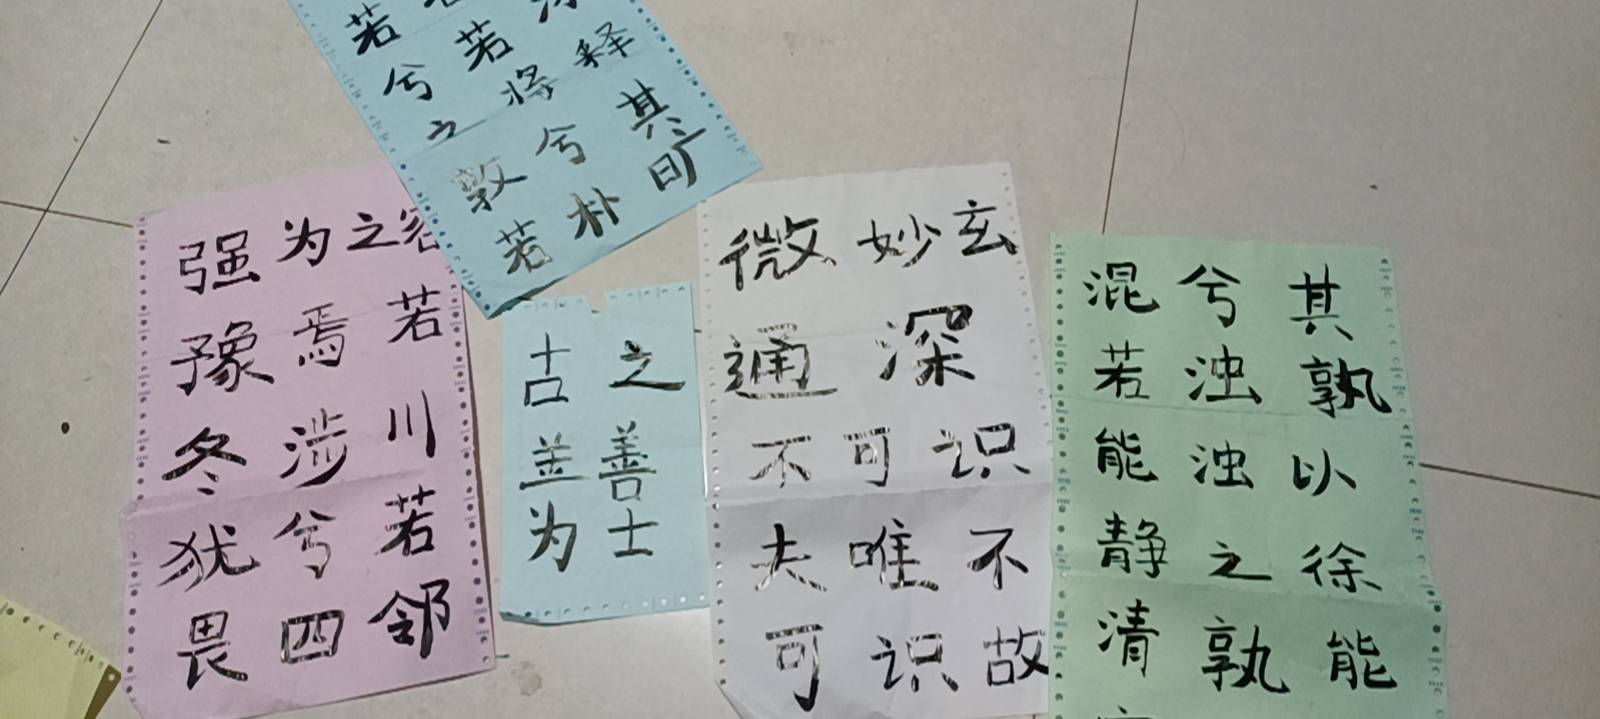 若
兮若
之将释
敦兮其
若朴旷
强为之容
豫焉若
冬涉川
犹兮若
畏四邻
古之
善
为士
微妙玄
通深
不可识
夫唯不
可识故
混兮其
若浊孰
能浊以
静之徐
清孰能